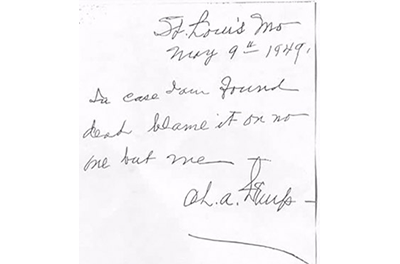 St. Louis Mo
May 9th 1949.
In case I am found
dead blame it on no
one but me
Ch. A. Lemp